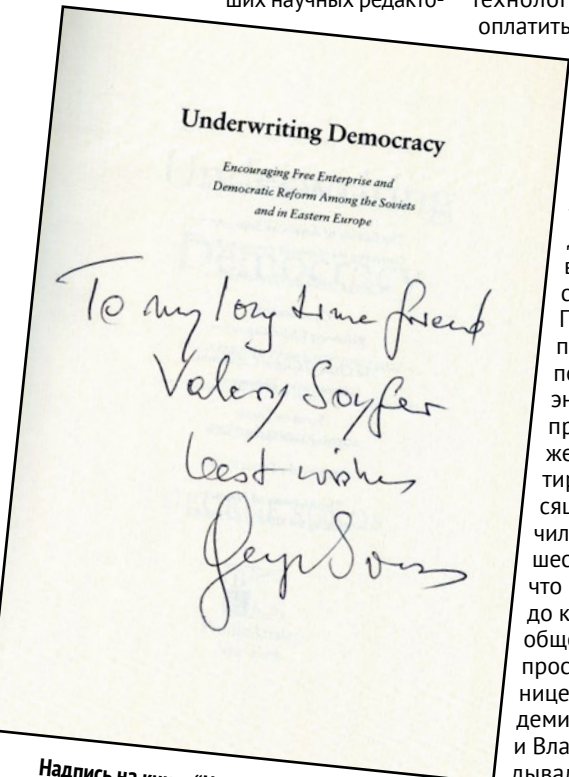 ших научных редакто-
технолог
оплатить
Underwriting Democracy
Encouraging Free Enterprise and
Democratic Reform Among the Soviets
and in Eastern Europe
To my long time friend
Valery Soyfer
best wishes
George Soros
эн
пр
же
тир
сящ
чил
шес
что
до к
обще
прос
нице
деми
и Вла
дывал
Надпись на книге